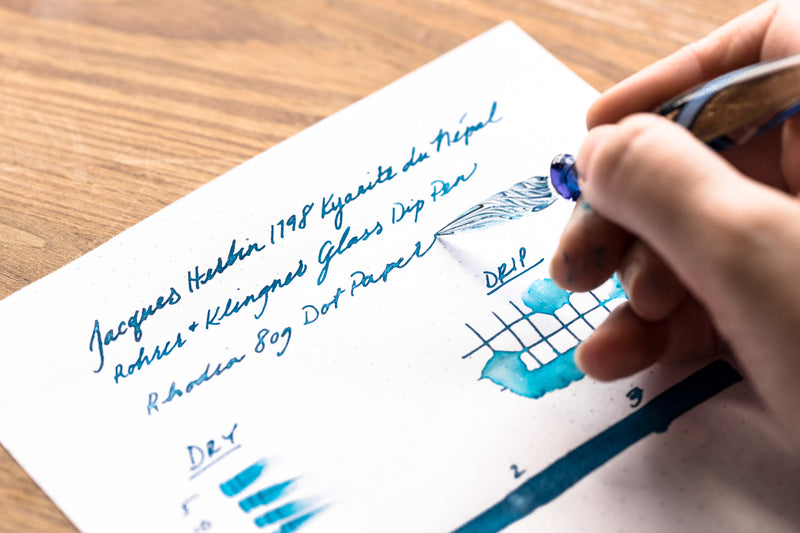 Jacques Herbin 1798 Kyanite du Népal
Rohrer & Klingner Glass Dip Pen
Rhodia 80g Dot Paper
DRIP
3
2
DRY
5